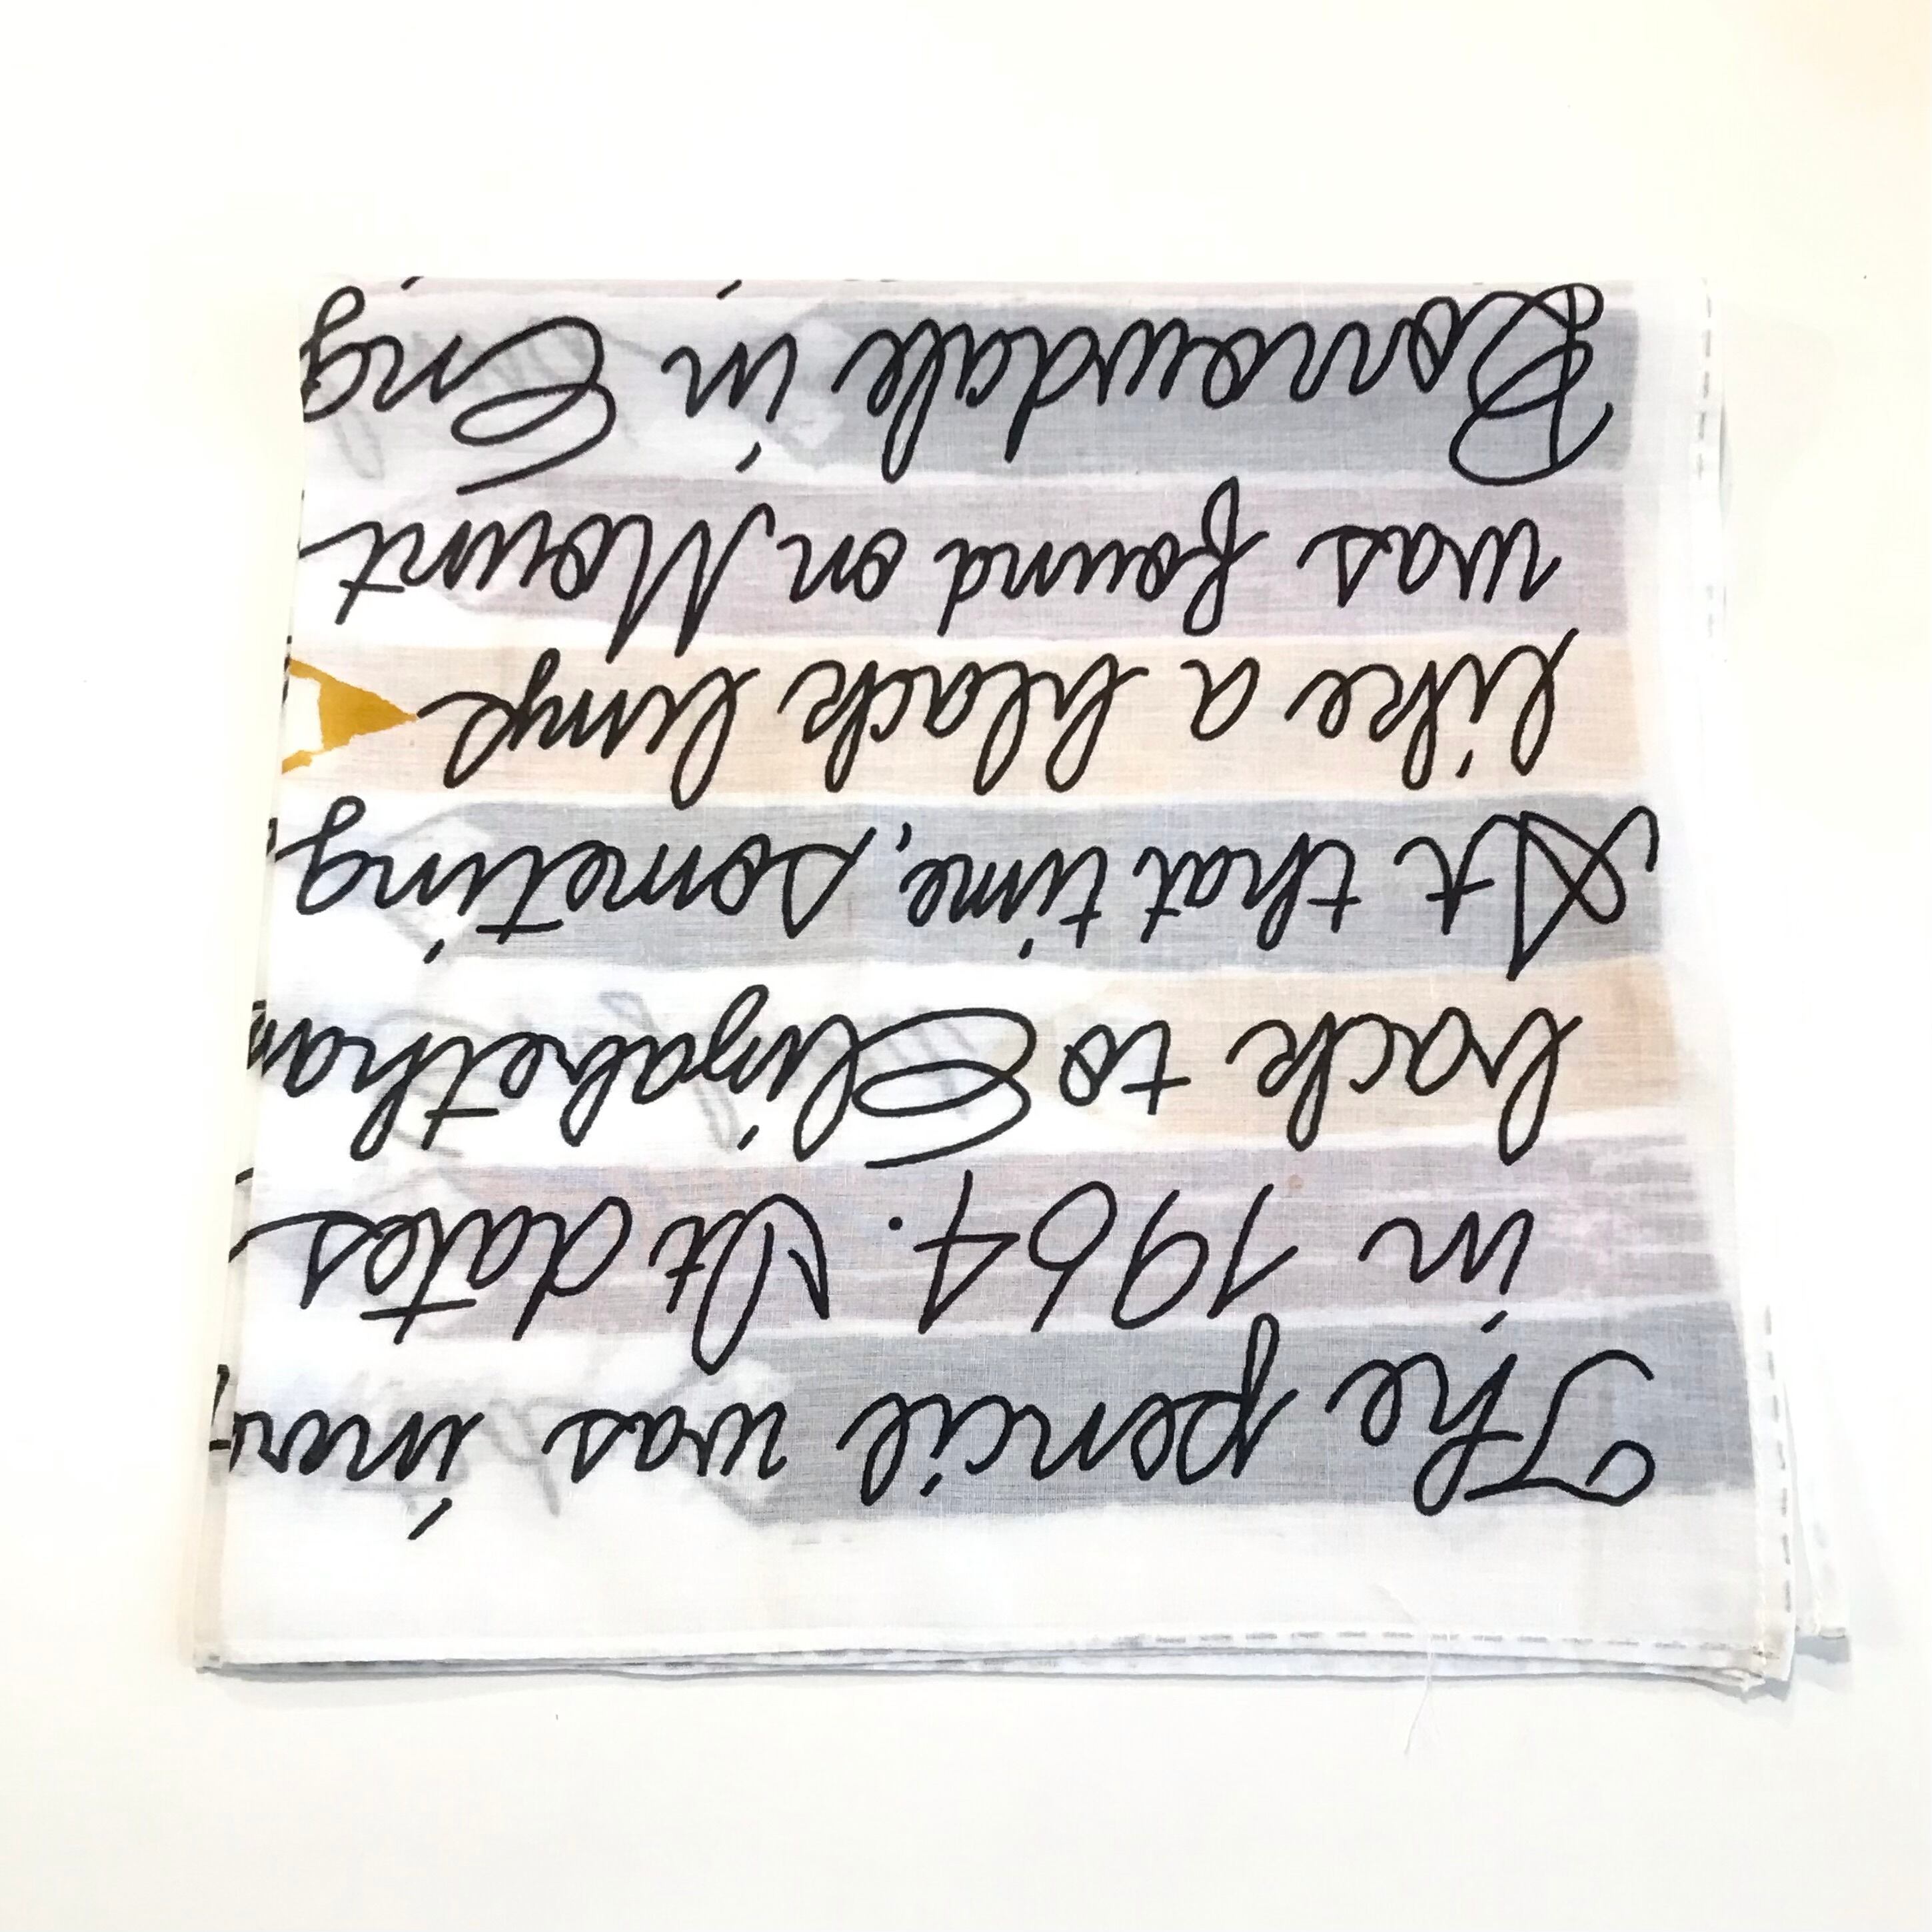 The pencil was inven
in 1964. It dates
back to Elizabethan
At that time, someting
like a black lump
was found on Mount
Borowdale in Eng